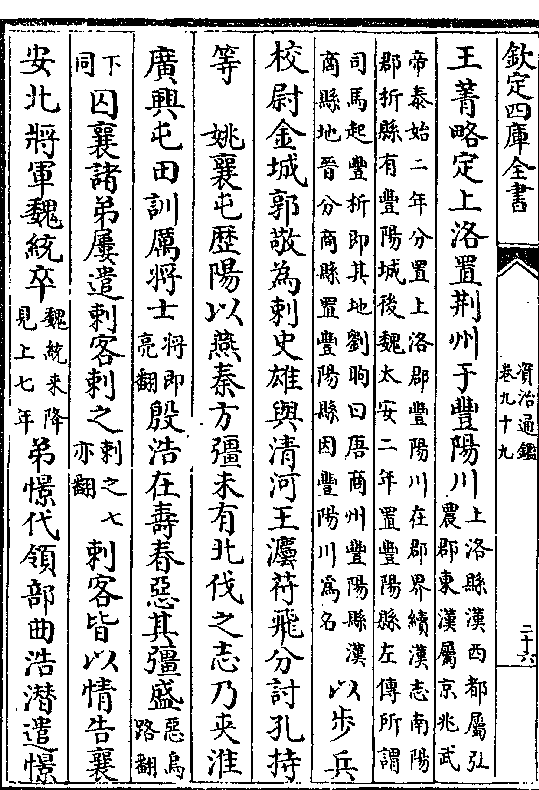 欽定四庫全書
資治通鑑
卷九十九
二十六
王菁略定上洛置荆州于豐陽川
上洛縣漢西都屬弘
農郡東漢屬京兆武
帝泰始二年分置上洛郡豐陽川在郡界續漢志南陽
郡析縣有豐陽城後魏太安二年置豐陽縣左傳所謂
司馬起豐折即其地劉昫曰唐商州豐陽縣漢
商縣地晉分商縣置豐陽縣因豐陽川為名
以步兵
校尉金城郭敬為刺史雄與清河王灋苻飛分討孔持
等 姚襄屯歷陽以燕秦方彊未有北伐之志乃夾淮
廣興屯田訓厲將士
將即
亮翻
殷浩在壽春惡其彊盛
惡烏
路翻
下
同
囚襄諸弟屢遣刺客刺之
刺之七
亦翻
刺客皆以情告襄
安北將軍魏統卒
魏統來降
見上七年
弟憬代領部曲浩潜遣憬